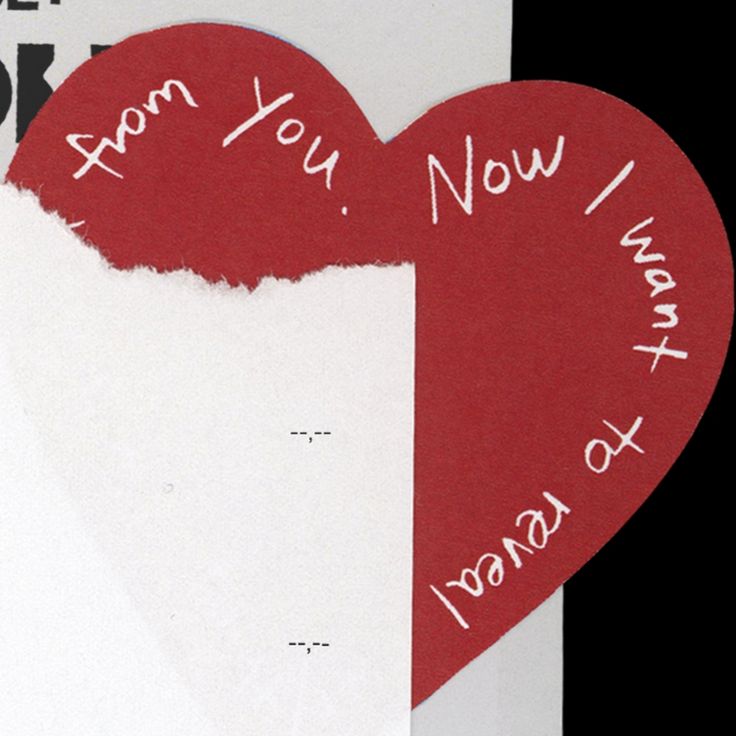 from you. Now I want to reveal
--,--
--,--